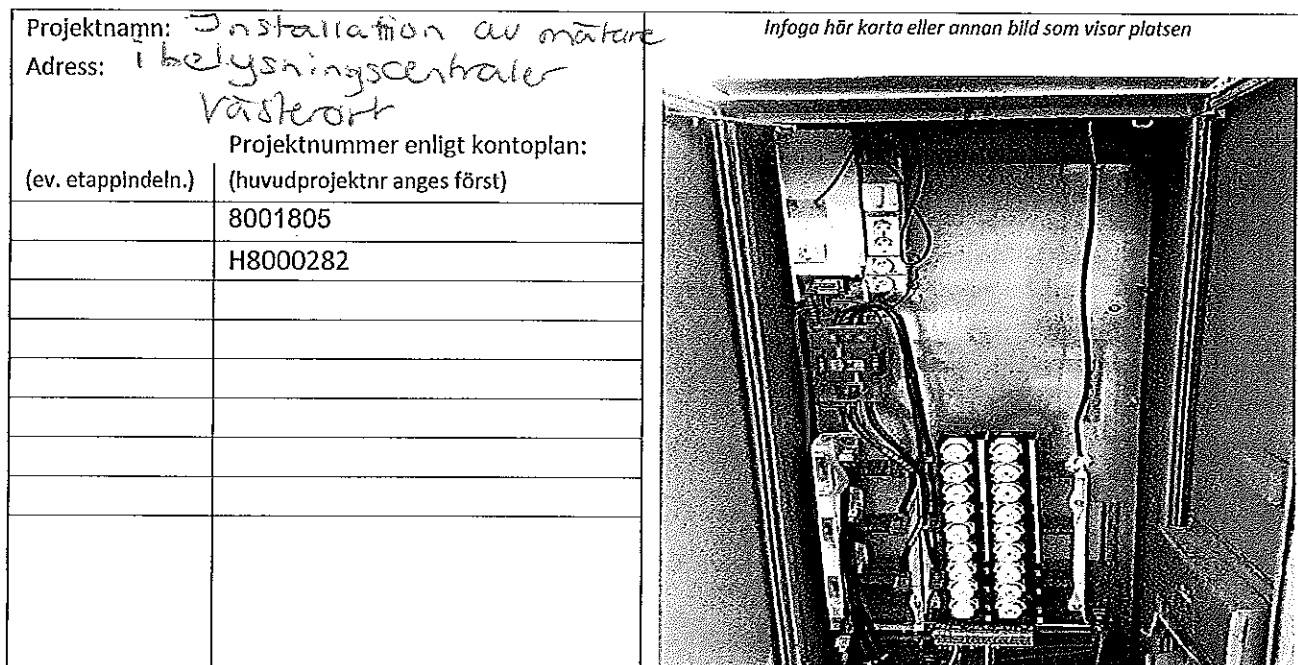 Projektnamn: Installation av mätare
Adress: i belysningscentraler
Västerort
Projektnummer enligt kontoplan:
(ev. etappindeln.) (huvudprojektnr anges först)
8001805
H8000282
Infoga här karta eller annan bild som visar platsen